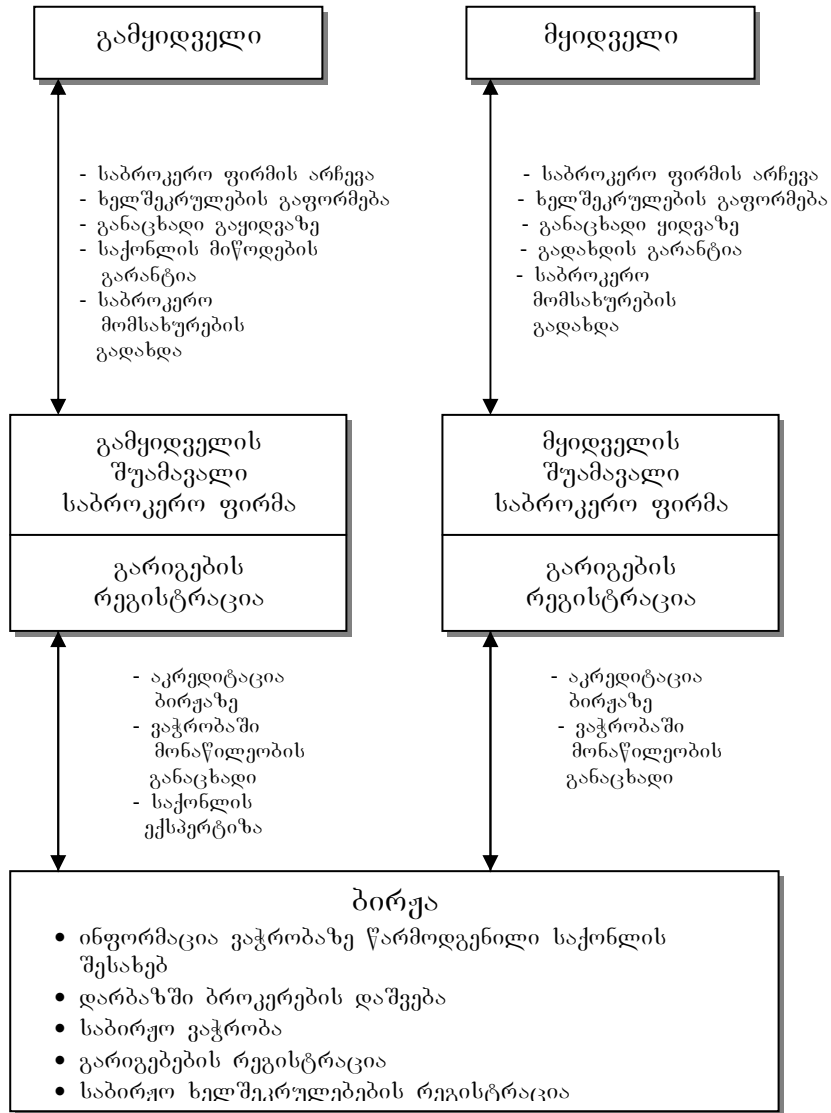 გამყიდველი
მყიდველი
- საბროკერო ფირმის არჩევა
- ხელშეკრულების გაფორმება
- განაცხადი გაყიდვაზე
- საქონლის მიწოდების
გარანტია
- საბროკერო
მომსახურების
გადახდა
- საბროკერო ფირმის არჩევა
- ხელშეკრულების გაფორმება
- განაცხადი ყიდვაზე
- გადახდის გარანტია
- საბროკერო
მომსახურების
გადახდა
გამყიდველის
შუამავალი
საბროკერო ფირმა
გარიგების
რეგისტრაცია
მყიდველის
შუამავალი
საბროკერო ფირმა
გარიგების
რეგისტრაცია
- აკრედიტაცია
ბირჟაზე
- ვაჭრობაში
მონაწილეობის
განაცხადი
- საქონლის
ექსპერტიზა
- აკრედიტაცია
ბირჟაზე
- ვაჭრობაში
მონაწილეობის
განაცხადი
ბირჟა
• ინფორმაცია ვაჭრობაზე წარმოდგენილი საქონლის
შესახებ
• დარბაზში ბროკერების დაშვება
• საბირჟო ვაჭრობა
• გარიგებების რეგისტრაცია
• საბირჟო ხელშეკრულებების რეგისტრაცია